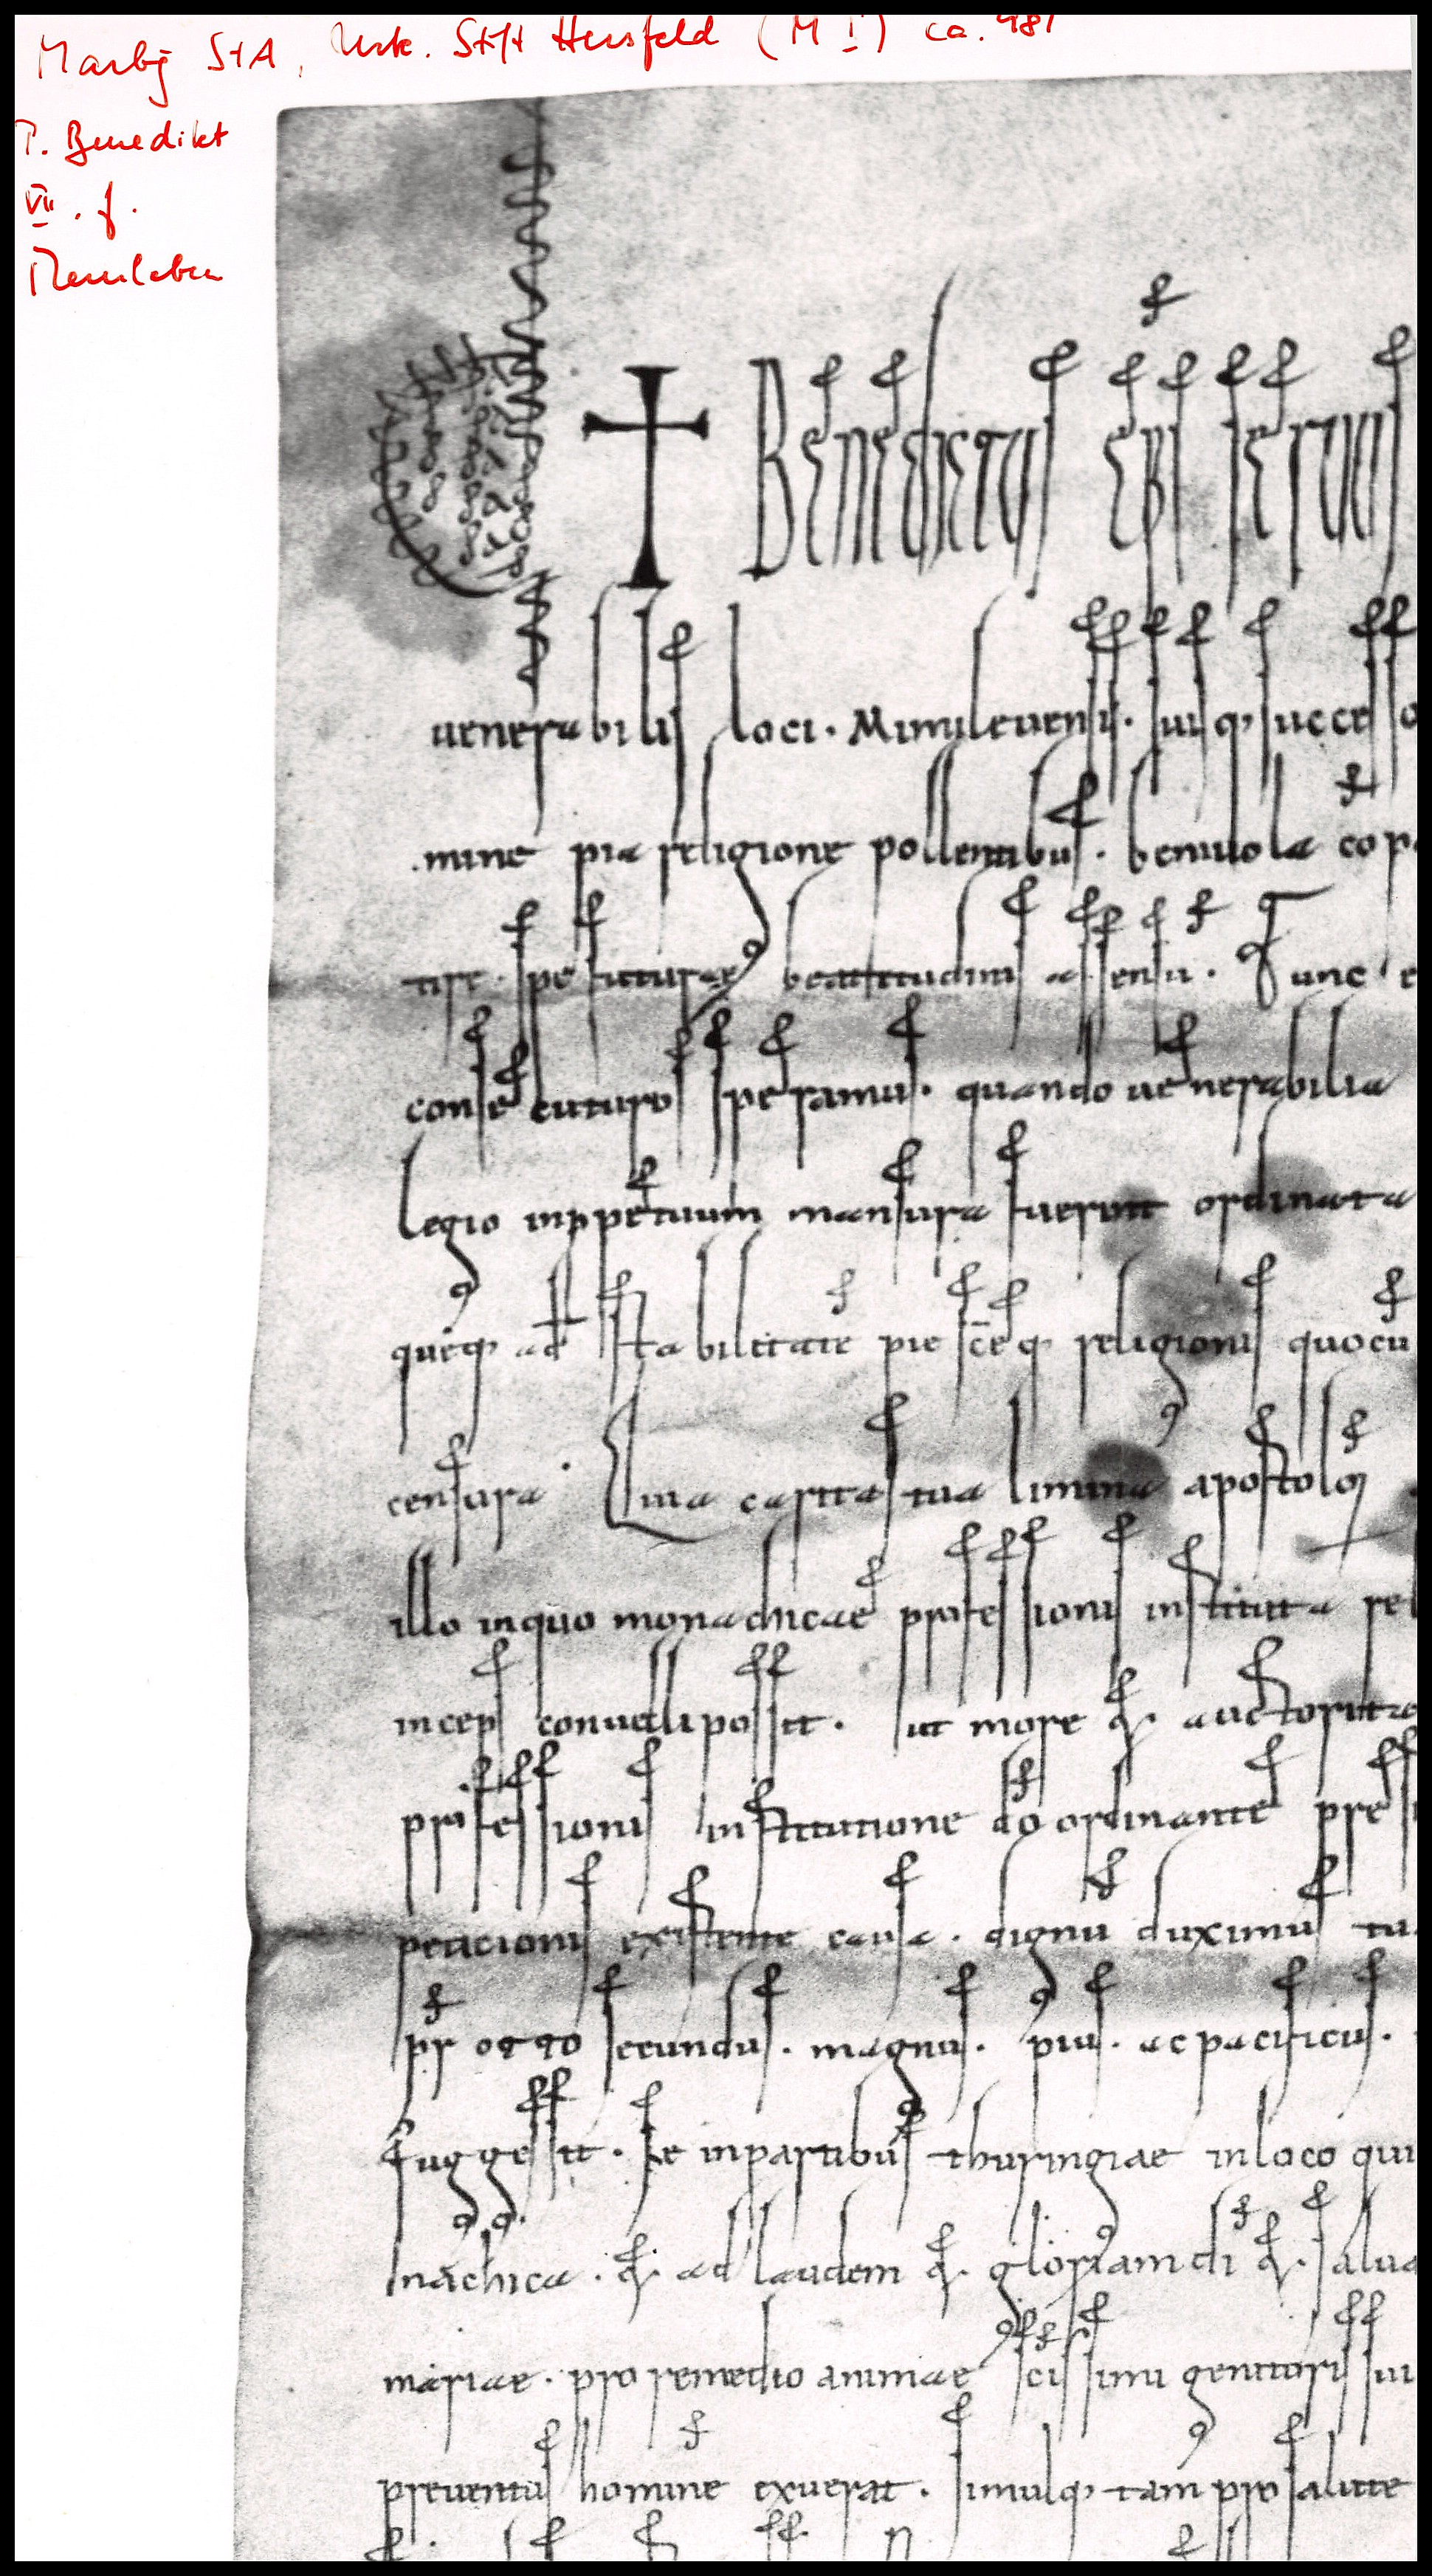 Marbg StA, Urk. Stift Hersfeld (M I) ca. 981
P. Benedikt
VII. f.
Memleben
✝ Benedictus epi servus
uenerabilis loci. Mimileuensis. suisq; successo
mine pia religione pollentibus. beniuola cop
tire. spe future beatitudinis assensu. Tunc e
consecuturos speramus. quando uenerabilia
legio inppetuum mansura fuerint ordinata
queq; ad stabilitate pie sceq; religionis quocu
censura. Quia caritas tua limina apostolo
illo inquo monachicae professionis instituta rel
inceps conuelli possit. ut more q;. auctorita
professionis institutione do ordinante pres
peticionis existente causa. dignu duximus tu
pr otto secundus. magnus. pius. ac pacificus.
suggessit. se inpartibus thuringiae inloco qui
nachica. &. ad laudem &. gloriam di &. salua
mariae. pro remedio animae scissimi genitoris sui
preuentus homine exuerat. simulq; tam pro salute